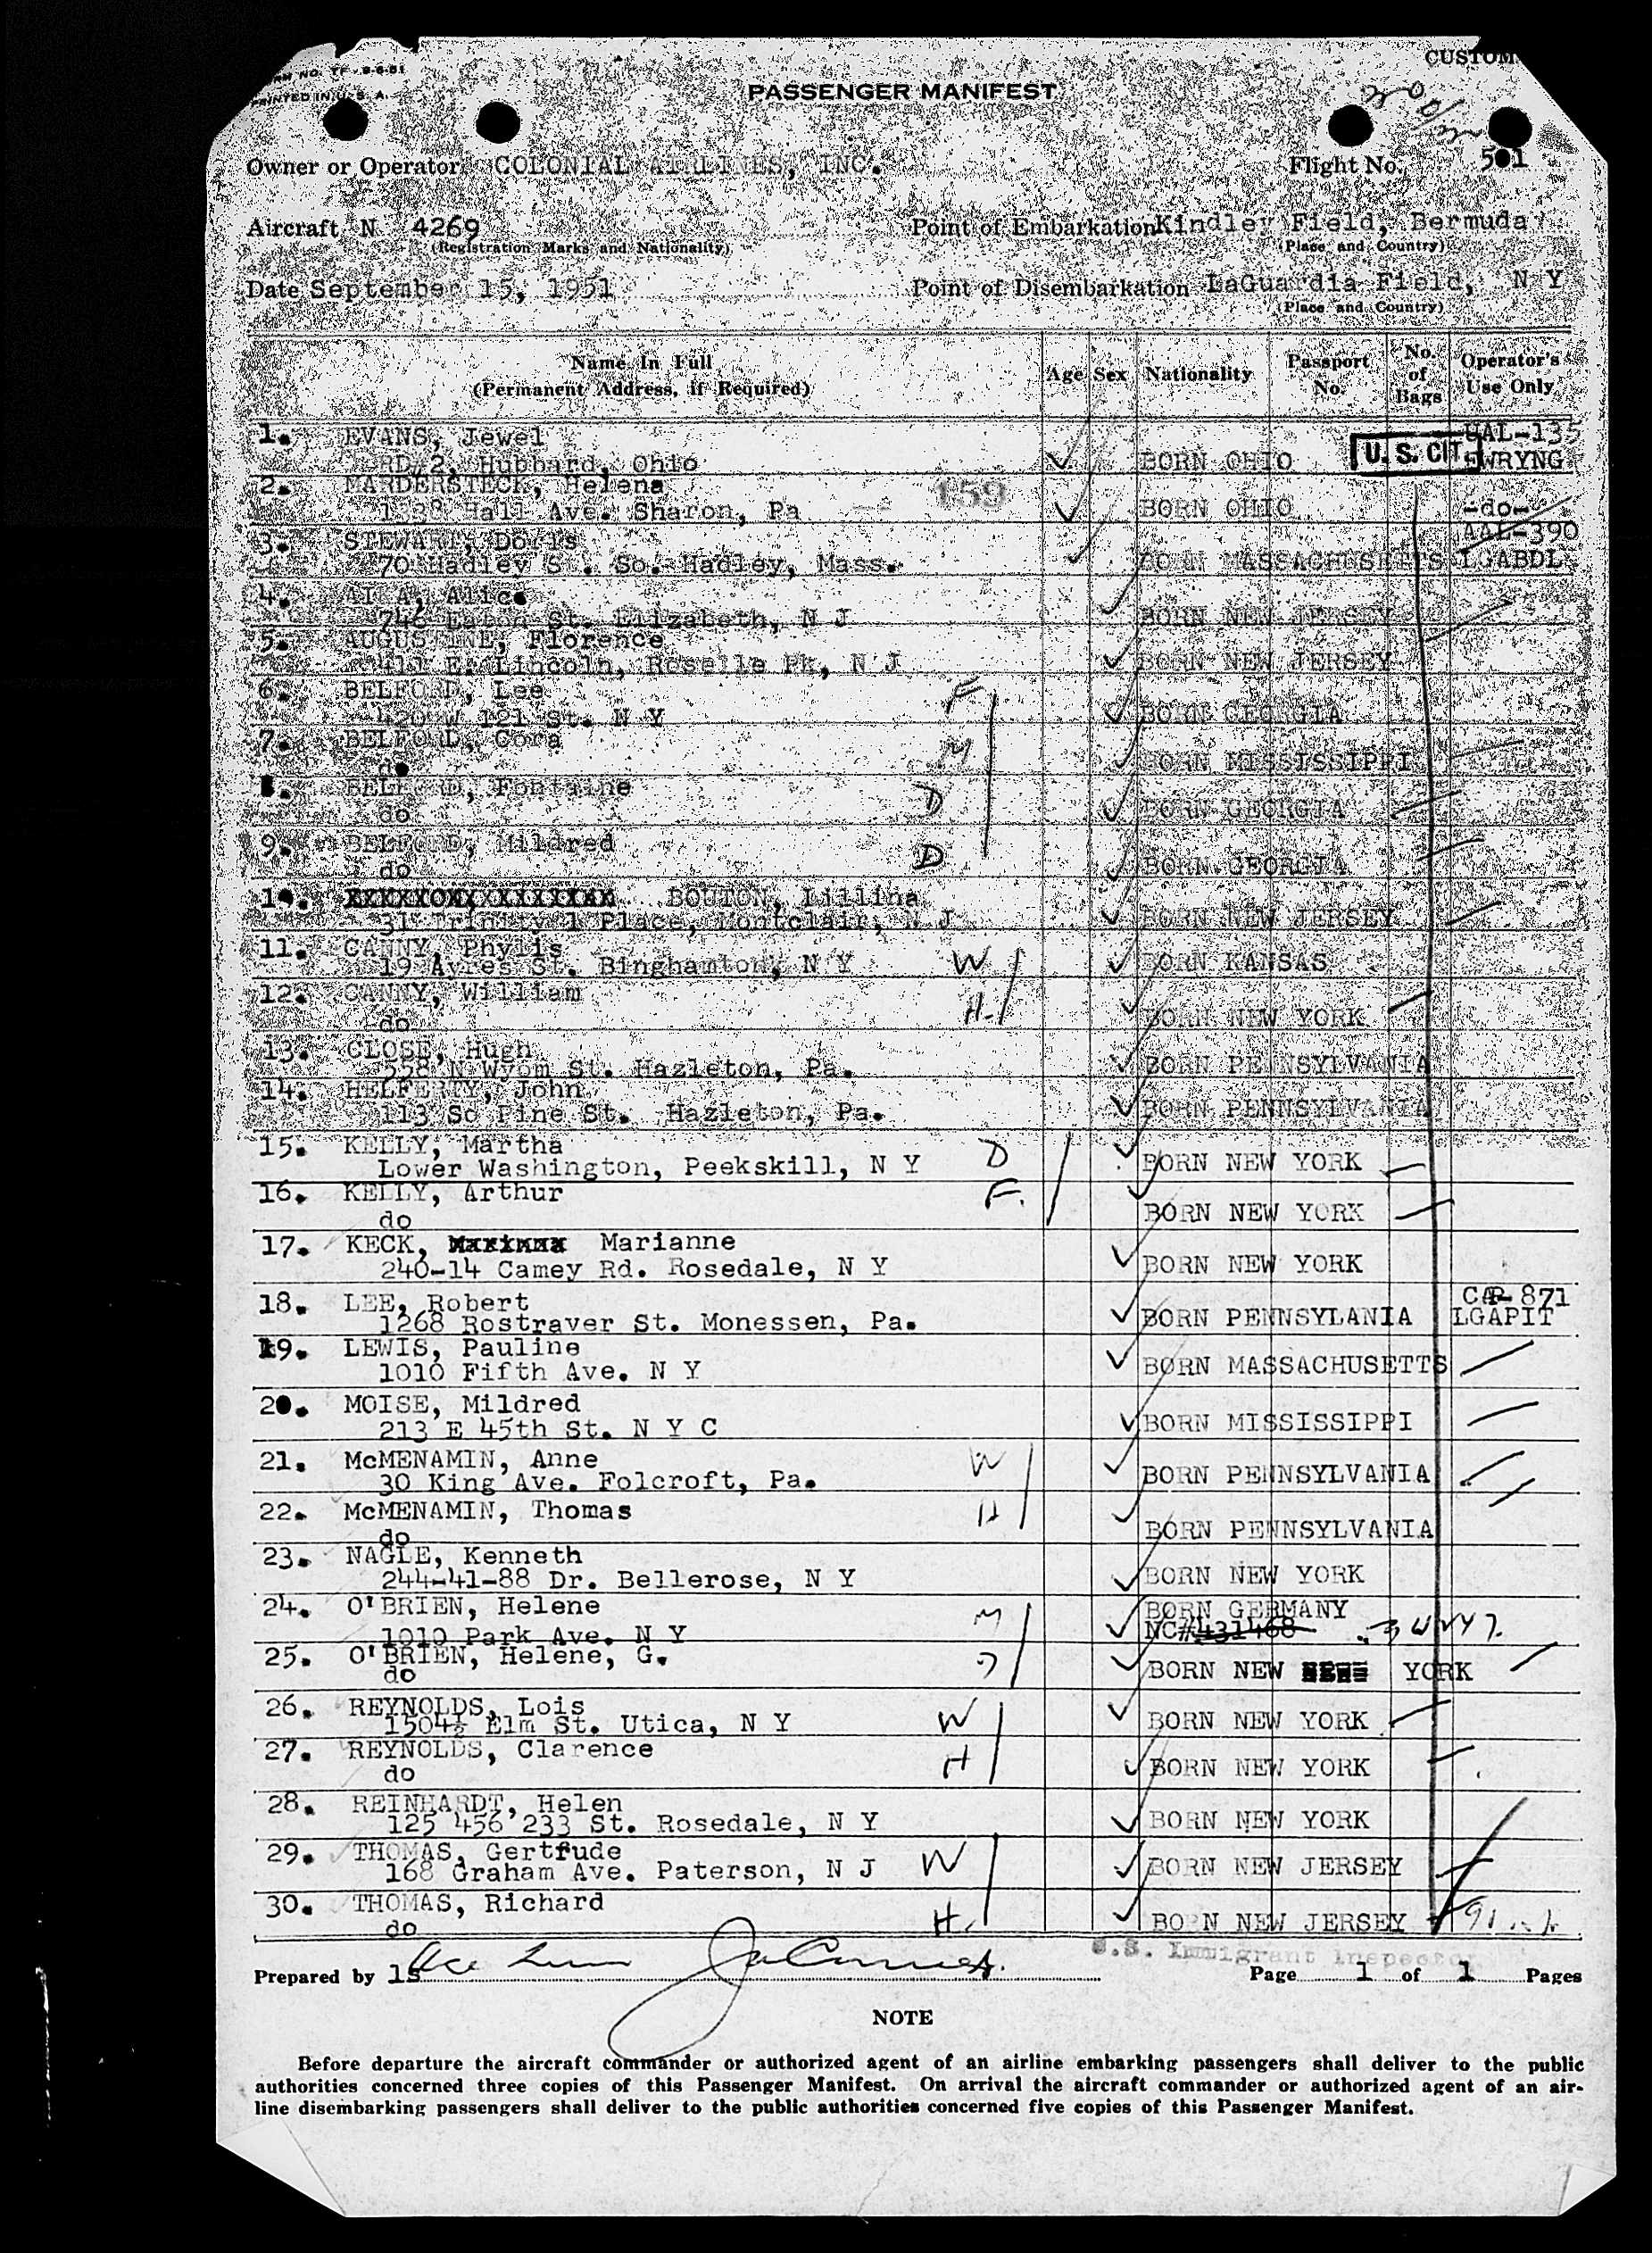 CUSTOM
PRINTED IN U. S. A.
PASSENGER MANIFEST
Owner or Operator COLONIAL AIRLINES, INC.
Flight No. 501
Aircraft N 4269
(Registration Marks and Nationality)
Point of Embarkation Kindley Field, Bermuda
(Place and Country)
Date September 15, 1951
Point of Disembarkation LaGuardia Field, N Y
(Place and Country)
Name In Full
(Permanent Address, if Required)
Age Sex Nationality Passport No. No. of Bags Operator's Use Only
1. EVANS, Jewel UAL-135
RD 2, Hubbard, Ohio BORN OHIO U. S. CIT. WRYNG
2. MARDERSTECK, Helena 159
Hall Ave. Sharon, Pa BORN OHIO -do-
3. STEWART, Doris AAL-390
70 Hadley St. So. Hadley, Mass. BORN MASSACHUSETTS LGABDL
4. Alice
746 Eaton St. Elizabeth, N J BORN NEW JERSEY
5. AUGUSTINE, Florence
411 E. Lincoln, Roselle Pk, N J BORN NEW JERSEY
6. BELFORD, Lee F
420 W 121 St. N Y BORN GEORGIA
7. BELFORD, Cora M
do BORN MISSISSIPPI
8. BELFORD, Fontaine D
do BORN GEORGIA
9. BELFORD, Mildred D
do BORN GEORGIA
10. BOUTON, Lillina
31 Trinity 1 Place, Montclair, N J BORN NEW JERSEY
11. CANNY, Phylis
19 Ayres St. Binghamton, N Y W BORN KANSAS
12. CANNY, William H.
do BORN NEW YORK
13. CLOSE, Hugh
558 N Wyom St. Hazleton, Pa. BORN PENNSYLVANIA
14. HELFERTY, John
113 So Pine St. Hazleton, Pa. BORN PENNSYLVANIA
15. KELLY, Martha D
Lower Washington, Peekskill, N Y BORN NEW YORK
16. KELLY, Arthur F.
do BORN NEW YORK
17. KECK, Marianne
240-14 Camey Rd. Rosedale, N Y BORN NEW YORK
18. LEE, Robert CAP-871
1268 Rostraver St. Monessen, Pa. BORN PENNSYLANIA LGAPIT
19. LEWIS, Pauline
1010 Fifth Ave. N Y BORN MASSACHUSETTS
20. MOISE, Mildred
213 E 45th St. N Y C BORN MISSISSIPPI
21. McMENAMIN, Anne W
30 King Ave. Folcroft, Pa. BORN PENNSYLVANIA
22. McMENAMIN, Thomas H
do BORN PENNSYLVANIA
23. NAGLE, Kenneth
244-41-88 Dr. Bellerose, N Y BORN NEW YORK
24. O'BRIEN, Helene M BORN GERMANY
1010 Park Ave. N Y NC#431468
25. O'BRIEN, Helene, G. D
do BORN NEW YORK
26. REYNOLDS, Lois
1504½ Elm St. Utica, N Y W BORN NEW YORK
27. REYNOLDS, Clarence H
do BORN NEW YORK
28. REINHARDT, Helen
125 456 233 St. Rosedale, N Y BORN NEW YORK
29. THOMAS, Gertrude
168 Graham Ave. Paterson, N J W BORN NEW JERSEY
30. THOMAS, Richard H.
do BORN NEW JERSEY
U.S. Immigrant Inspector
Prepared by ls
Page 1 of 1 Pages
NOTE
Before departure the aircraft commander or authorized agent of an airline embarking passengers shall deliver to the public
authorities concerned three copies of this Passenger Manifest. On arrival the aircraft commander or authorized agent of an air-
line disembarking passengers shall deliver to the public authorities concerned five copies of this Passenger Manifest.